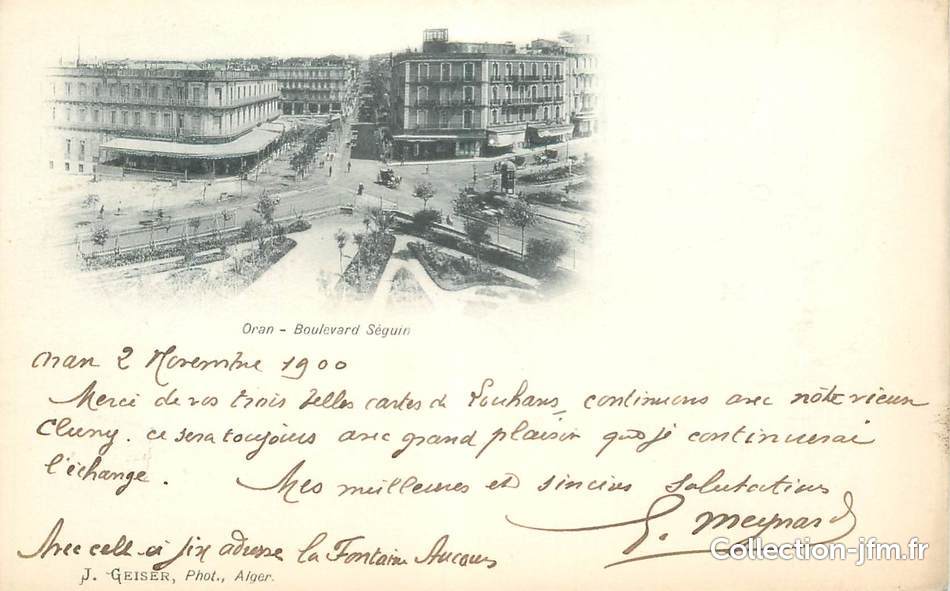 Oran - Boulevard Séguin
Oran 2 Novembre 1900
Merci de vos trois belles cartes de Louhans, continuons avec nôtre vieux
Cluny. ce sera toujours avec grand plaisir que je continuerai
l'échange.
Mes meilleures et sincères salutations
G. Meynard
Avec celle-ci six adresse la Fontaine
J. GEISER, Phot., Alger.
Collection-jfm.fr